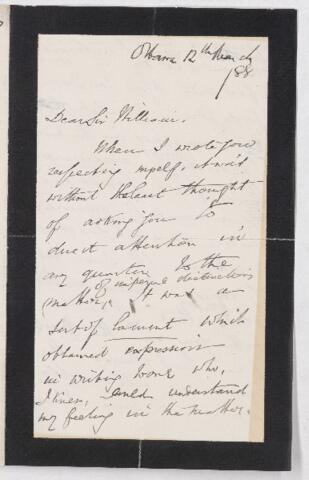 Ottawa 12th March
/88
Dear Sir William.
When I wrote you
respecting myself, it was
without the least thought
of asking you to
direct attention in
any quarter to the
of imperial distinctions
matter, It was a
sort of lament which
obtained expression
in writing to one who,
I knew, could understand
my feeling in the matter.